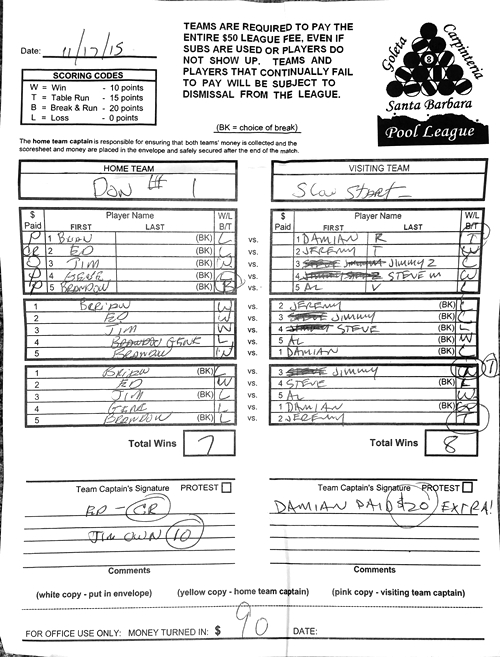 Date: 11/17/15
TEAMS ARE REQUIRED TO PAY THE
ENTIRE $50 LEAGUE FEE, EVEN IF
SUBS ARE USED OR PLAYERS DO
NOT SHOW UP. TEAMS AND
PLAYERS THAT CONTINUALLY FAIL
TO PAY WILL BE SUBJECT TO
DISMISSAL FROM THE LEAGUE.
Goleta Carpinteria
8
Santa Barbara
Pool League
SCORING CODES
W = Win - 10 points
T = Table Run - 15 points
B = Break & Run - 20 points
L = Loss - 0 points
(BK = choice of break)
The home team captain is responsible for ensuring that both teams' money is collected and the
scoresheet and money are placed in the envelope and safely secured after the end of the match.
HOME TEAM VISITING TEAM
1 Slow Start
$ Paid Player Name FIRST LAST W/L B/T $ Paid Player Name FIRST LAST W/L B/T
P 1 (BK) L vs. 1 DAMIAN R T
2 ED (BK) L vs. 2 JEREMY T W
3 JIM (BK) vs. 3 JIMMY Z
P 4 GENE (BK) L vs. 4 STEVE M W
P 5 BRANDON (BK) B vs. 5 AL V L
1 W vs. 2 JEREMY (BK) L
2 ED W vs. 3 JIMMY (BK) L
3 JIM W vs. 4 STEVE (BK) L
4 GENE L vs. 5 AL (BK) W
5 BRANDON W vs. 1 DAMIAN (BK) L
1 (BK) L vs. 3 JIMMY
2 ED W vs. 4 STEVE (BK) L
3 JIM (BK) L vs. 5 AL W
4 GENE L vs. 1 DAMIAN (BK)
5 BRANDON (BK) L vs. 2 JEREMY T
Total Wins 7 Total Wins 8
Team Captain's Signature PROTEST Team Captain's Signature PROTEST
CR DAMIAN PAID $20 EXTRA!
JIM OWN 10
Comments Comments
(white copy - put in envelope) (yellow copy - home team captain) (pink copy - visiting team captain)
FOR OFFICE USE ONLY: MONEY TURNED IN: $ 90 DATE: